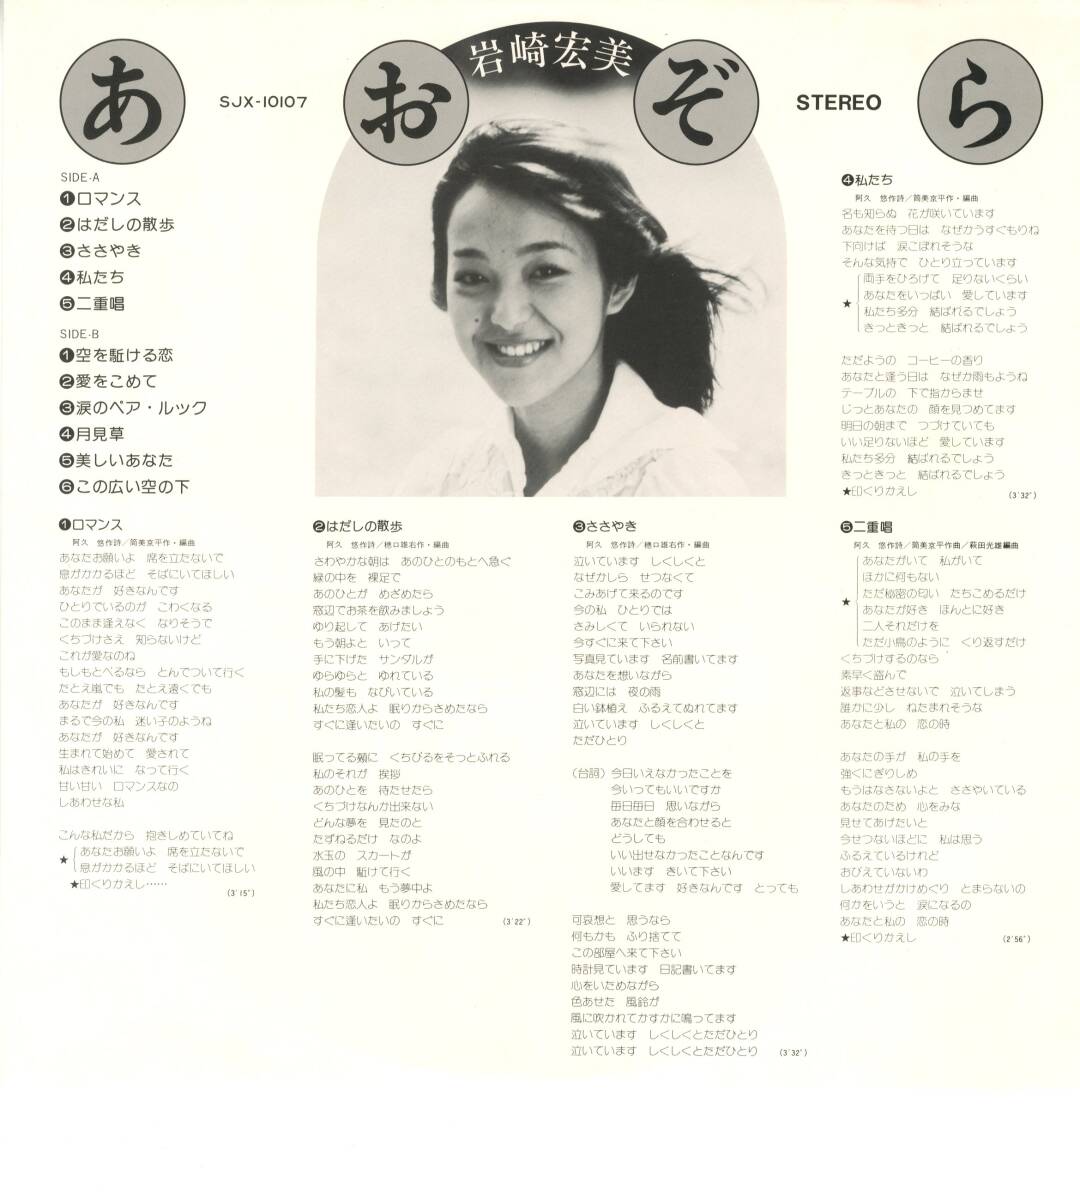 岩崎宏美
あ お ぞ ら
SJX-10107
STEREO
SIDE-A
❶ロマンス
❷はだしの散歩
❸ささやき
❹私たち
❺二重唱
SIDE-B
❶空を駈ける恋
❷愛をこめて
❸涙のペア・ルック
❹月見草
❺美しいあなた
❻この広い空の下
❶ロマンス
阿久 悠作詩／筒美京平作・編曲
あなたお願いよ 席を立たないで
息がかかるほど そばにいてほしい
あなたが 好きなんです
ひとりでいるのが こわくなる
このまま逢えなく なりそうで
くちづけさえ 知らないけど
これが愛なのね
もしもとべるなら とんでついて行く
たとえ嵐でも たとえ遠くでも
あなたが 好きなんです
まるで今の私 迷い子のようね
あなたが 好きなんです
生まれて始めて 愛されて
私はきれいに なって行く
甘い甘い ロマンスなの
しあわせな私
こんな私だから 抱きしめていてね
★ あなたお願いよ 席を立たないで
息がかかるほど そばにいてほしい
★印くりかえし……
(3'15")
❷はだしの散歩
阿久 悠作詩／穂口雄右作・編曲
さわやかな朝は あのひとのもとへ急ぐ
緑の中を 裸足で
あのひとが めざめたら
窓辺でお茶を飲みましょう
ゆり起して あげたい
もう朝よと いって
手に下げた サンダルが
ゆらゆらと ゆれている
私の髪も なびいている
私たち恋人よ 眠りからさめたなら
すぐに逢いたいの すぐに
眠ってる頬に くちびるをそっとふれる
私のそれが 挨拶
あのひとを 待たせたら
くちづけなんか出来ない
どんな夢を 見たのと
たずねるだけ なのよ
水玉の スカートが
風の中 駈けて行く
あなたに私 もう夢中よ
私たち恋人よ 眠りからさめたなら
すぐに逢いたいの すぐに (3'22")
❸ささやき
阿久 悠作詩／穂口雄右作・編曲
泣いています しくしくと
なぜかしら せつなくて
こみあげて来るのです
今の私 ひとりでは
さみしくて いられない
今すぐに来て下さい
写真見ています 名前書いてます
あなたを想いながら
窓辺には 夜の雨
白い鉢植え ふるえてぬれてます
泣いています しくしくと
ただひとり
(台詞) 今日いえなかったことを
今いってもいいですか
毎日毎日 思いながら
あなたと顔を合わせると
どうしても
いい出せなかったことなんです
いいます きいて下さい
愛してます 好きなんです とっても
可哀想と 思うなら
何もかも ふり捨てて
この部屋へ来て下さい
時計見ています 日記書いてます
心をいためながら
色あせた 風鈴が
風に吹かれてかすかに鳴ってます
泣いています しくしくとただひとり
泣いています しくしくとただひとり (3'32")
❹私たち
阿久 悠作詩／筒美京平作・編曲
名も知らぬ 花が咲いています
あなたを待つ日は なぜかうすぐもりね
下向けば 涙こぼれそうな
そんな気持で ひとり立っています
両手をひろげて 足りないくらい
あなたをいっぱい 愛しています
★ 私たち多分 結ばれるでしょう
きっときっと 結ばれるでしょう
ただようの コーヒーの香り
あなたと逢う日は なぜか雨もようね
テーブルの 下で指からませ
じっとあなたの 顔を見つめてます
明日の朝まで つづけていても
いい足りないほど 愛しています
私たち多分 結ばれるでしょう
きっときっと 結ばれるでしょう
★印くりかえし (3'32")
❺二重唱
阿久 悠作詩／筒美京平作曲／萩田光雄編曲
あなたがいて 私がいて
ほかに何もない
ただ秘密の匂い たちこめるだけ
★ あなたが好き ほんとに好き
二人それだけを
ただ小鳥のように くり返すだけ
くちづけするのなら
素早く盗んで
返事などさせないで 泣いてしまう
誰かに少し ねたまれそうな
あなたと私の 恋の時
あなたの手が 私の手を
強くにぎりしめ
もうはなさないよと ささやいている
あなたのため 心をみな
見せてあげたいと
今せつないほどに 私は思う
ふるえているけれど
おびえていないわ
しあわせがかけめぐり とまらないの
何かをいうと 涙になるの
あなたと私の 恋の時
★印くりかえし (2'56")